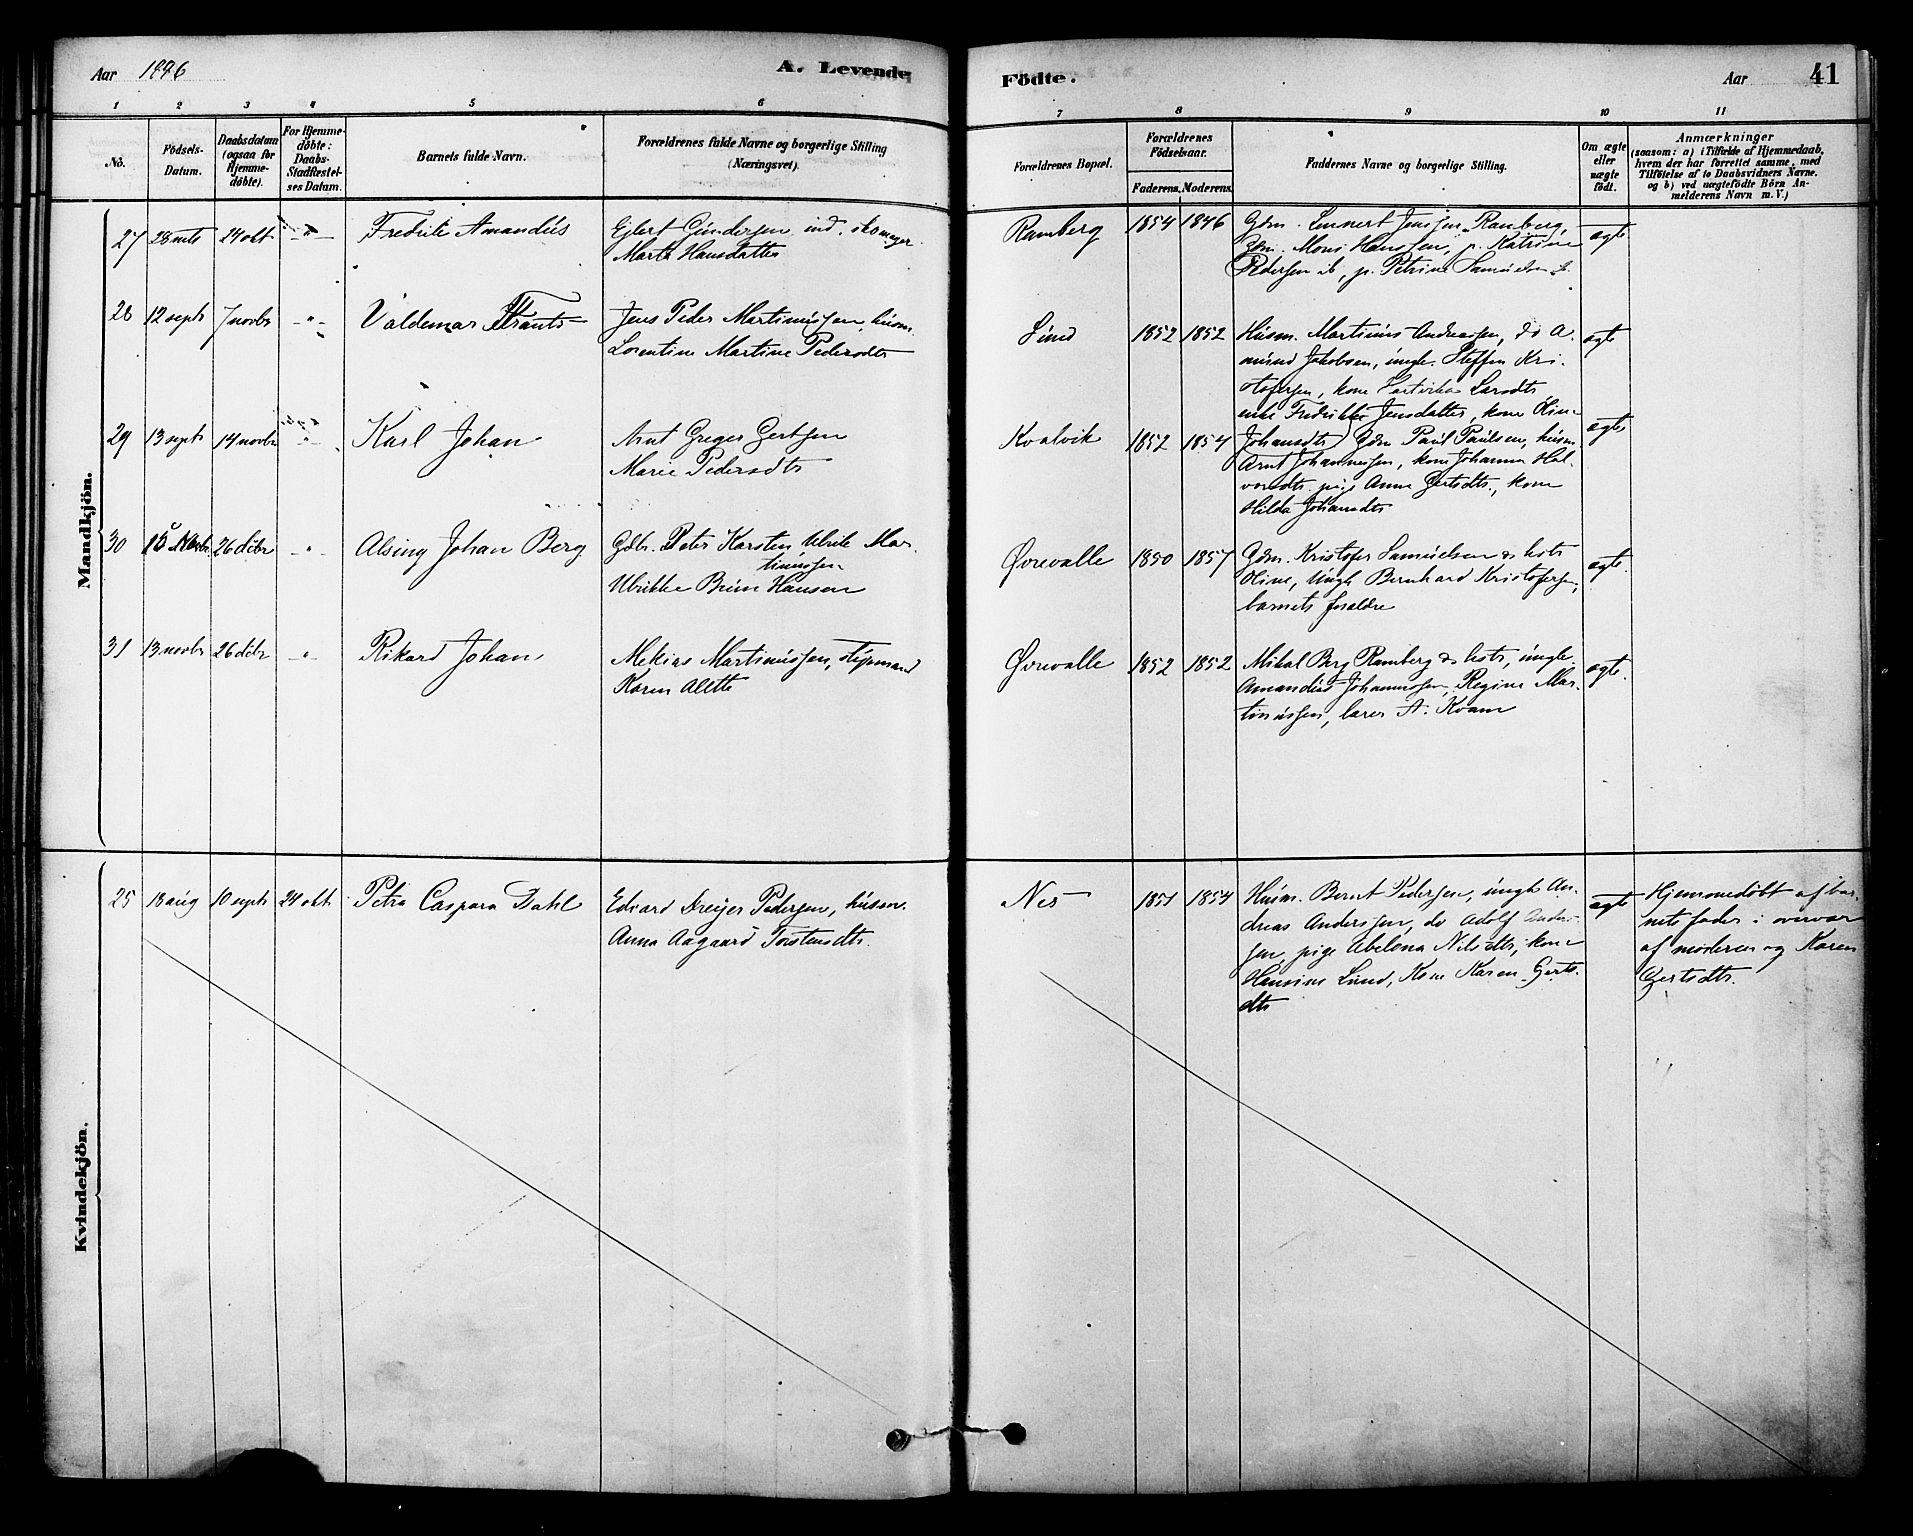 Aar 1886 A. Levende Födte. Aar 41
1 2 3 4 5 6 7 8 9 10 11
No. Födsels-Datum. Daabsdatum (ogsaa for Hjemme-döbte). For Hjemme-döbte: Daabs-Stadfæstel-ses Datum. Barnets fulde Navn. Forældrenes fulde Navne og borgerlige Stilling (Næringsvei).
Forældrenes Bopæl. Forældrenes Födselsaar. Faderens. Moderens. Faddernes Navne og borgerlige Stilling. Om ægte eller uægte födt. Anmærkninger (saasom: a) i Tilfælde af Hjemmedaab, hvem der har forrettet samme, med Tilföielse af to Daabsvidners Navne, og b) ved uægtefödte Börn An-melderens Navn m. V.)
Mandkjön.
27 28 24 okt Fredrik Amandus Ejlert Gundersen ind.
Marta Hansdatter
Ramberg 1854 1846 Gdm. Lennert Jensen Ramberg, ægte
Gdm. Mons Hanssen, p. Katrine
Pedersen ib, p. Petrine Samuelsen
28 12 sept 7 novbr Valdemar Frants Jens Peder Martinussen, husm.
Lorentine Martine Pedersdtr
Sund 1852 1852 Husm. Martinus Andreassen, do A- ægte
mund Jakobsen, ungk. Steffen Kri-
stofersen, kone Larsdtr
enke Fredrikke Jensdatter, kone Oline
29 13 sept 14 novbr Karl Johan Arnt Greger Gertsen
Marie Pedersdtr
Kvalvik 1852 1854 Johansdtr, Gdm Paul Paulsen, husm ægte
Arnt Johannessen, kone Johanna Hal-
vorsdtr. pige Anna Gertsdtr., kone
Hilda Johansdtr
30 15 Novbr. 26 dcbr Alsing Johan Berg Gdbr. Peter Karsten Ulrik Mar-
tinussen
Ulrikke Hansen
Øvrevalle 1850 1857 Gdm. Kristofer Samuelsen & hstr ægte.
Oline, Ungk Bernhard Kristofersen,
barnets forældre
31 13 novbr 26 dcbr Rikard Johan Mekias Martinussen, styrmand
Karen Alette
Øvrevalle 1852 1852 Mikal Berg Ramberg & hstr, ungk. ægte.
Amandus Johannessen, Regine Mar-
tinussen, lærer A. Kvam
Kvindekjön.
25 18 aug 10 sept 24 okt. Petra Caspara Dahl Edvard Dreyer Pedersen, husm.
Anna Aagaard Torstensdtr.
Nes 1851 1854 Husm. Bernt Pedersen, ungk An- ægte Hjemmedøbt af bar-
dreas Anderssen, do Adolf Anders- nets fader i overvær
sen, pige Abelona Nilsdtr, kone af moderen og Karen
Hansine Lund, Kone Karen Gerts- Gertsdtr.
dtr